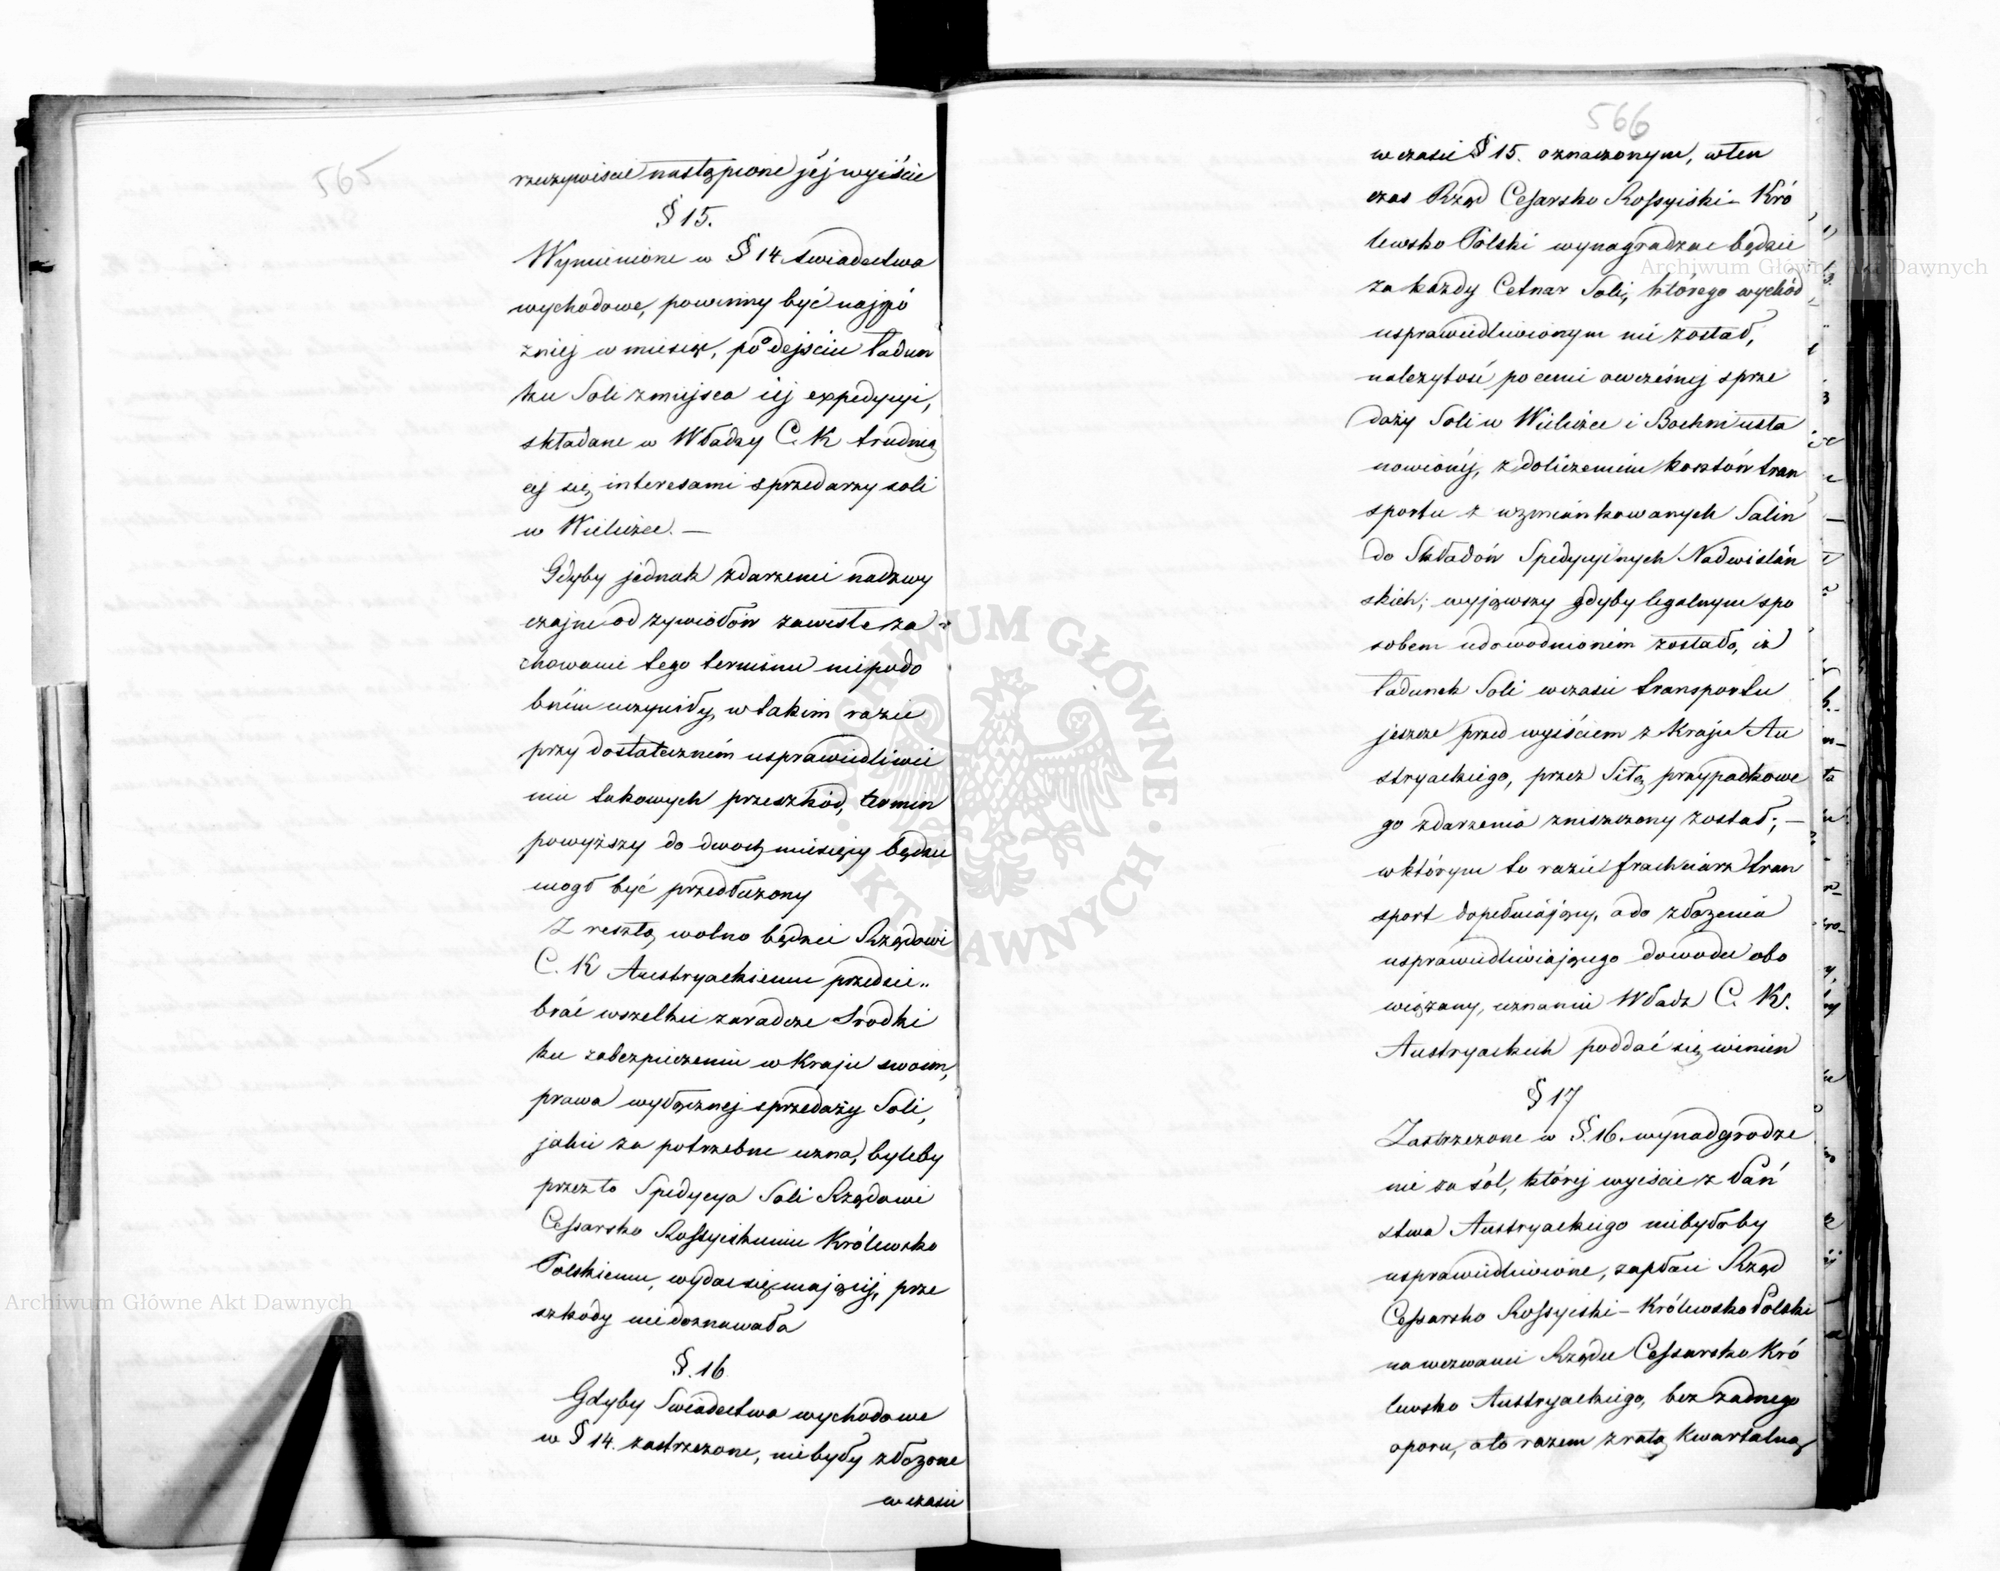 565
rzeczywiscie nastąpione jéj wyiście
§ 15.
Wymienione w § 14 swiadectwa
wychodowe, powinny być najpó
zniej w miesiąc, po odejściu ładun
ku Soli z miejsca iéj expedycyi,
składane w Władzy C. K trudnią
cej się interesami sprzedarzy soli
w Wieliczce. —
Gdyby jednak zdarzenie nadzwy
czajne od zywiołów zawisłe za
chowanie tego terminu niepodo
bném uczyniły, w takim razie
przy dostateczném usprawiedliwie
niu takowych przeszkód, termin
powyższy do dwoch miesięcy będzie
mogł być przedłuzony
Z resztą wolno będzie Rządowi
C. K Austryackiemu przedsie„
brać wszelkie zaradcze Srodki
ku zabezpieczeniu w Kraju swoim,
prawa wyłącznej sprzedaży Soli,
jakie za potrzebne uzna, byleby
przez to Spedycya Soli Rządowi
Cessarsko Rossyiskiemu Królewsko
Polskiemu, wydac się mającej, prze
szkody niedoznawała
§. 16
Gdyby Swiadectwa wychodowe
w § 14. zastrzezone, niebyły złozone
w czasie
566
w czasie § 15. oznaczonym, wten
czas Rząd Cesarsko Rossyiski - Kró
lewsko Polski wynagradzac będzie
za kazdy Cetnar Soli, ktorego wychód
usprawiedliwionym nie został,
nalezytość po cenie owcześnéj sprze
daży Soli w Wieliczce i Bochni usta
nowionéj, z doliczeniem kosztów tran
sportu z wzmiankowanych Salin
do Składów Spedycyinych Nadwislań
skich; wyjąwszy gdyby legalnym spo
sobem udowodnioném zostało, iz
ładunek Soli w czasie transportu
jeszcze przed wyiściem z Kraju Au
stryackiego, przez Siłą przypadkowe
go zdarzenia zniszczony został; —
w którym to razie frachciarz tran
sport dopełniający, a do złozenia
usprawiedliwiającego dowodu obo
wiązany, uznaniu Władz C. K.
Austryackich poddać się winien
§ 17
Zastrzezone w §. 16. wynadgrodze
nie za sól, któréj wyiscie z Pań
stwa Austryackiego niebyłoby
usprawiedliwione, zapłaci Rząd
Cessarsko Rossyiski - Królewsko Polski
na wezwanie Rządu Cessarsko Kró
lewsko Austryackiego, bez zadnego
oporu, a to razem z ratą Kwartalną
Archiwum Główne Akt Dawnych
Archiwum Główne Akt Dawnych
ARCHIWUM GŁÓWNE AKT DAWNYCH